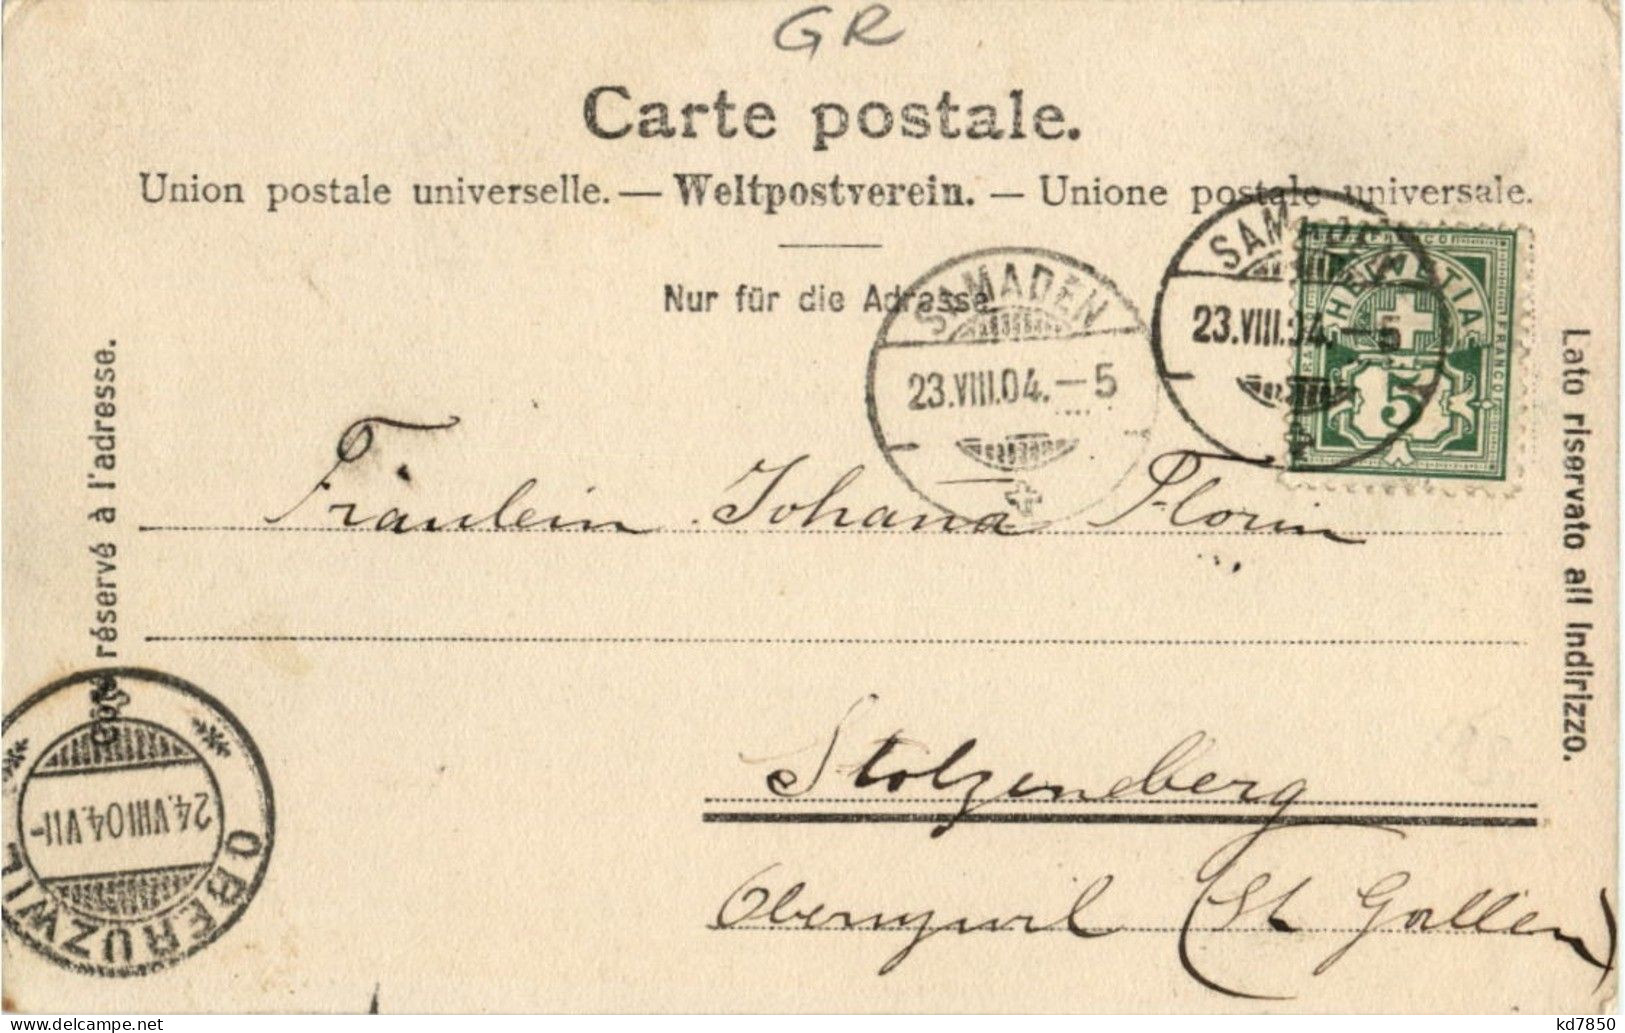 GR
Carte postale.
Union postale universelle. — Weltpostverein. — Unione postale universale.
Nur für die Adresse
SAMADEN
23.VIII.04.–5
SAMADEN
23.VIII.04.–5
FRANCO
HELVETIA
FRANCO
5
Côté réservé à l'adresse.
Lato riservato all Indirizzo.
Fräulein Johana Florin
Stolzenberg
Oberuzwil (St Gallen)
OBERUZWIL
24.VIII 04.VII–
kd7850